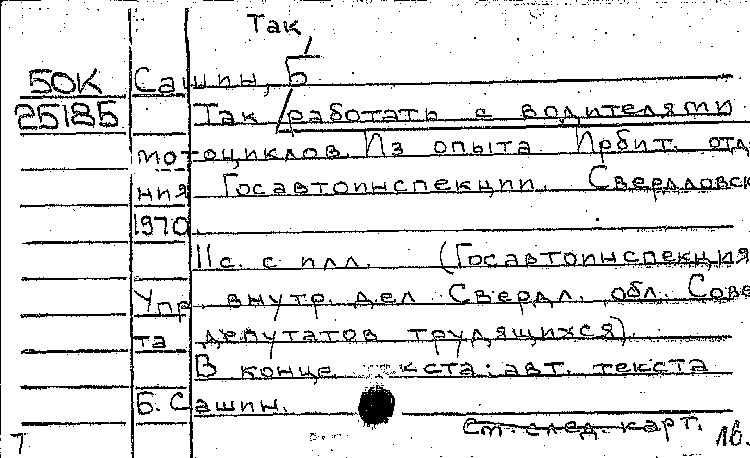 Так
50К Сашин, Б
25185 Так работать с водителями
мотоциклов. Из опыта Ирбит. отд
ния Госавтоинспекции. Свердловск
1970.
11с. с илл. (Госавтоинспекция
Упр внутр. дел Свердл. обл. Сове
та депутатов трудящихся).
В конце текста: авт. текста
Б. Сашин.
См. след. карт.
Т 16.